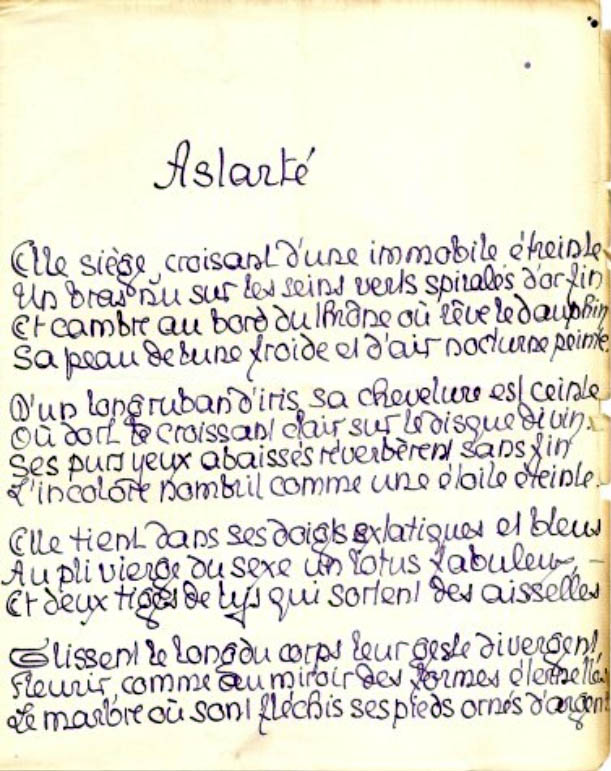 Astarté
Elle siège, croisant d'une immobile étreinte
Un bras nu sur les seins verts spiralés d'or fin
Et cambre au bord du thrône où rêve le dauphin
Sa peau de lune froide et d'air nocturne peinte
D'un long ruban d'iris sa chevelure est ceinte
Où dort le croissant clair sur le disque divin.
Ses purs yeux abaissés réverbèrent sans fin
L'incolore nombril comme une étoile éteinte.
Elle tient dans ses doigts extatiques et bleus
Au pli vierge du sexe un lotus fabuleux, –
Et deux tiges de lys qui sortent des aisselles
Glissent le long du corps leur geste divergent,
Fleurir, comme au miroir des formes éternelles
Le marbre où sont fléchis ses pieds ornés d'argent